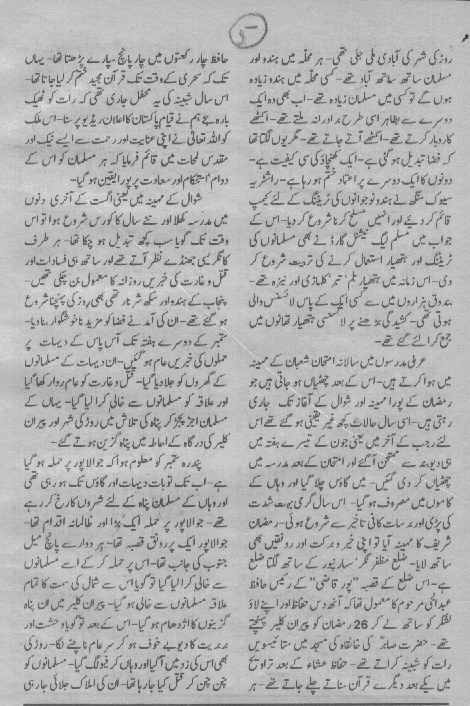 ۵
روڑکی شہر کی آبادی ملی جلی تھی۔ ہر محلہ میں ہندو اور
مسلمان ساتھ ساتھ آباد تھے۔ کسی محلہ میں ہندو زیادہ
ہوں گے تو کسی میں مسلمان زیادہ تھے۔ اب بھی وہ ایک
دوسرے سے بظاہر اسی طرح برادرانہ ملتے تھے۔ اکٹھے
کاروبار کرتے تھے۔ اکٹھے آتے جاتے تھے۔ مگر یوں لگتا تھا
کہ فضا تبدیل ہو گئی ہے۔ ایک کھنچاؤ کی سی کیفیت ہے۔
دونوں کا ایک دوسرے پر اعتماد ختم ہو رہا ہے۔ راشٹریہ
سیوک سنگھ نے ہندو نوجوانوں کی ٹریننگ کے لئے کیمپ
قائم کر دیئے اور انہیں مسلح کرنا شروع کر دیا۔ اس کے
جواب میں مسلم لیگ نیشنل گارڈ نے بھی مسلمانوں کی
ٹریننگ اور ہتھیار استعمال کرنے کی تربیت شروع کر
دی۔ اس زمانہ میں ہتھیار بلم' تبر' کلہاڑی اور نیزہ تھے۔
بندوق ہزاروں میں سے کسی ایک کے پاس لائسنس والی
ہوتی تھی۔ کشیدگی بڑھنے پر لائسنسی ہتھیار تھانوں میں
جمع کرائے گئے تھے۔
عربی مدرسوں میں سالانہ امتحان شعبان کے مہینہ
میں ہوا کرتے ہیں۔ اس کے بعد چھٹیاں ہو جاتی ہیں جو
رمضان کے پورا مہینہ اور شوال کے آغاز تک جاری
رہتی ہیں۔ اسی سال حالات کچھ غیر یقینی ہو گئے تھے اس
لئے رجب کے آخر میں یعنی جون کے تیسرے ہفتہ میں
ہی دیوبند سے ممتحن آ گئے اور امتحان کے بعد مدرسہ میں
چھٹیاں کر دی گئیں۔ میں گاؤں چلا گیا اور وہاں کے
کاموں میں مصروف ہو گیا۔ اس سال گرمی بہت شدت
کی پڑی اور برسات کافی تاخیر سے شروع ہوئی۔ رمضان
شریف کا مہینہ آیا تو اپنی خیر و برکت اور رونقیں بھی
ساتھ لایا۔ ضلع مظفر نگر' سہارنپور کے ساتھ لگتا ضلع
ہے۔ اس ضلع کے قصبہ "پور قاضی" کے رئیس حافظ
عبدالحئی مرحوم کا معمول تھا کہ آٹھ دس حفاظ اور اپنے لاؤ
لشکر کو ساتھ لے کر 26 رمضان کو پیران کلیر پہنچتے
تھے۔ حضرت صابر کی خانقاہ کی مسجد میں ستائیسویں
رات کو شبینہ کراتے تھے۔ حفاظ عشاء کے بعد تراویح
میں یکے بعد دیگرے قرآن سناتے چلے جاتے تھے۔ ہر
حافظ چار رکعتوں میں چار پانچ سپارے پڑھتا تھا۔ یہاں
تک کہ سحری کے وقت تک قرآن مجید ختم کر لیا جاتا تھا۔
اس سال شبینہ کی یہ محفل جاری تھی کہ رات کو ٹھیک
بارہ بجے ہم نے قیام پاکستان کا اعلان ریڈیو پر سنا۔ اس ملک
کو اللہ تعالیٰ نے اپنی عنایت اور رحمت سے ایسے نیک اور
مقدس لمحات میں قائم فرمایا کہ ہر مسلمان کو اس کے
دوام' استحکام اور سعادت پر پورا یقین ہو گیا۔
شوال کے مہینہ میں یعنی اگست کے آخری دنوں
میں مدرسہ کھلا اور نئے سال کا کورس شروع ہوا تو اس
وقت تک گویا سب کچھ تبدیل ہو چکا تھا۔ ہر طرف
کانگریسی جھنڈے نظر آتے تھے اور ساتھ ہی فسادات اور
قتل و غارت کی خبریں روزانہ کا معمول بن چکی تھیں۔
پنجاب کے ہندو اور سکھ شرنارتھی بھی روڑکی پہنچنا شروع
ہو گئے تھے۔ ان کی آمد نے فضا کو مزید ناخوشگوار بنا دیا۔
ستمبر کے دوسرے ہفتہ تک آس پاس کے دیہات پر
حملوں کی خبریں عام ہو گئیں۔ ان دیہات کے مسلمانوں
کے گھروں کو جلا دیا گیا۔ قتل و غارت کو عام روا رکھا گیا
اور علاقہ کو مسلمانوں سے خالی کرا لیا گیا۔ یہاں کے
مسلمان اجڑ پجڑ کر پناہ کی تلاش میں روڑکی شہر اور پیران
کلیر کی درگاہ کے احاطہ میں پناہ گزین ہوتے گئے۔
پندرہ ستمبر کو معلوم ہوا کہ جوالاپور پر حملہ ہو گیا
ہے۔ اب تک تو بات دیہات اور گاؤں تک ہو رہی تھی
اور وہاں کے مسلمان پناہ کے لئے شہروں کا رخ کر رہے
تھے۔ جوالاپور پر حملہ ایک بڑا اور ظالمانہ اقدام تھا۔
جوالاپور ایک پر رونق قصبہ تھا۔ ہردوارے پانچ میل
جنوب کی جانب تھا۔ اس پر حملہ کر کے اسے مسلمانوں
سے خالی کرا لیا گیا تو گویا اس سے شمال کی سمت کا تمام
علاقہ مسلمانوں سے خالی ہو گیا۔ پیران کلیر میں ان پناہ
گزینوں کا اژدھام ہو گیا۔ اس کے بعد تو گویا دہشت اور
بربریت کا دیو بے خوف ہو کر سر عام ناچنے لگا۔ روڑکی
بھی اس کی زد میں آ گیا اور وہاں کرفیو لگ گیا۔ مسلمانوں کو
چن چن کر قتل کیا جا رہا تھا۔ ان کی املاک جلائی جا رہی